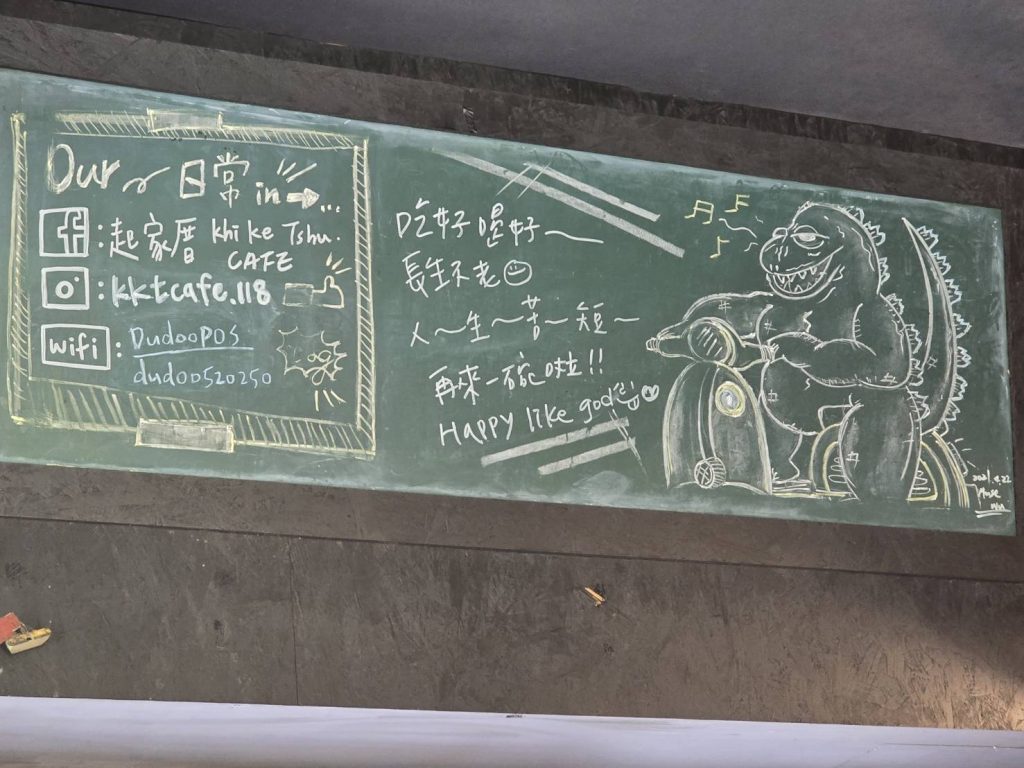 Our 日常 in
f : 起家厝 khi ke Tshu.
CAFE
: kktcafe.118
wifi : DudooPOS
dudoo520250
吃好喝好
長生不老
人~生~苦~短~
再來一碗啦!!
HAPPY like god
2021.4.22